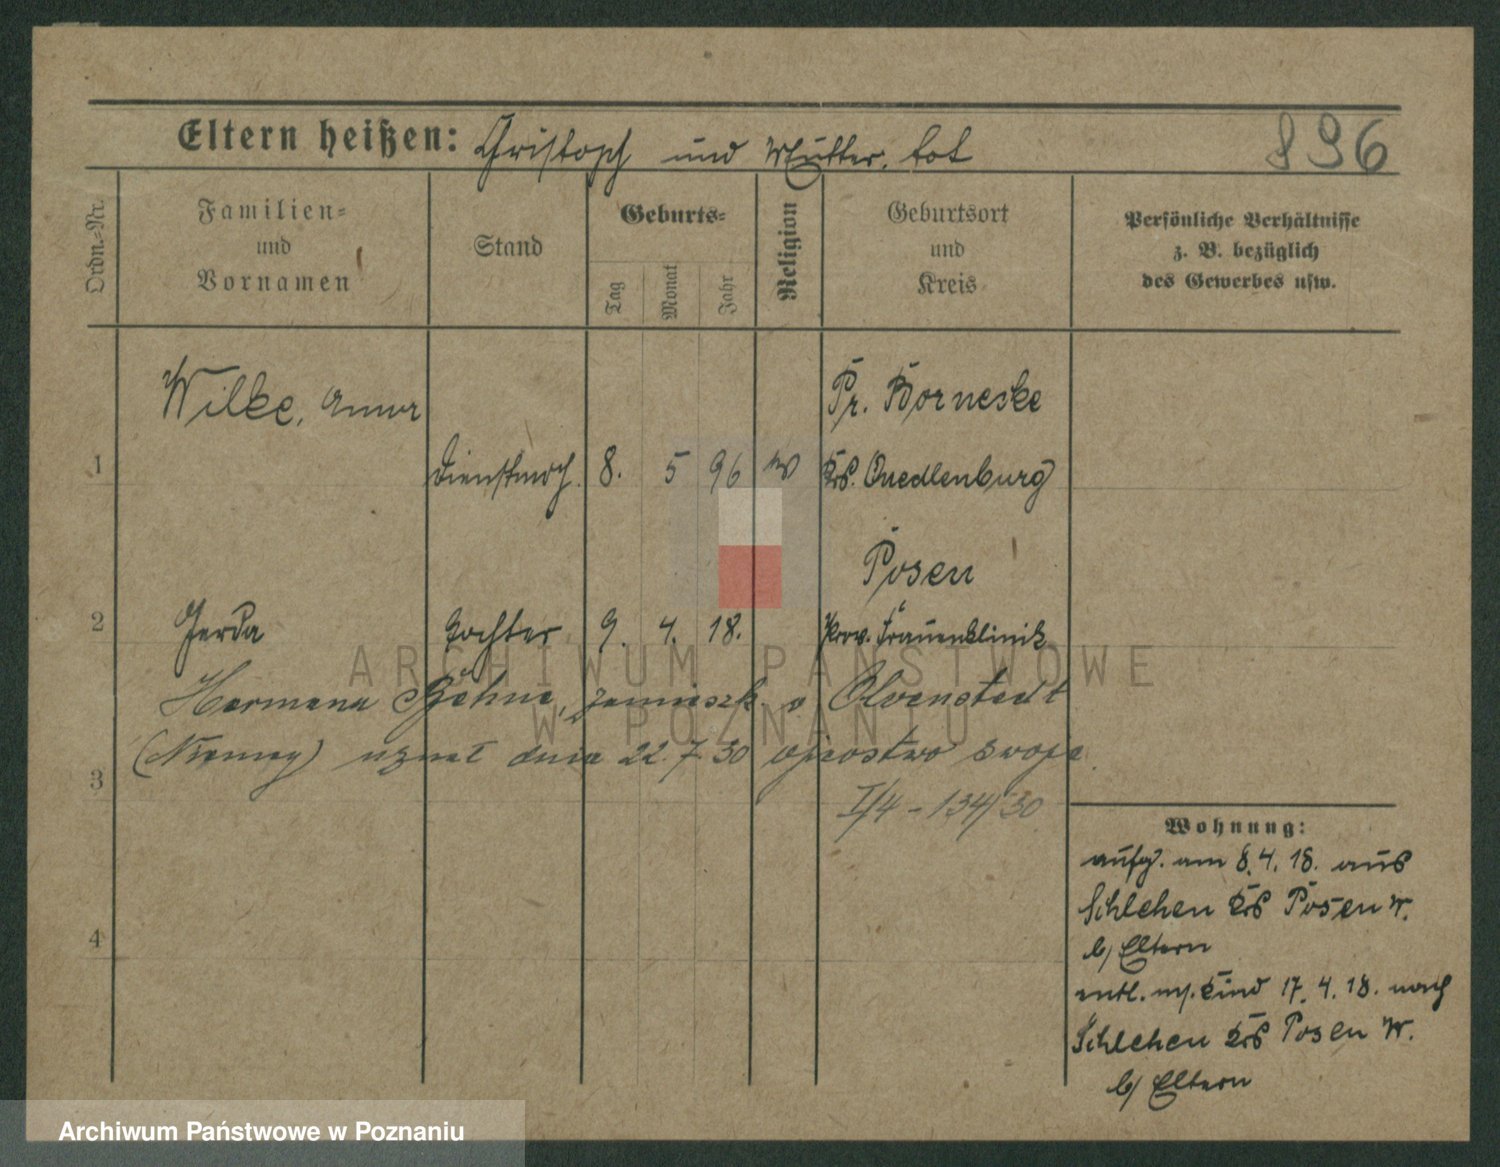 Eltern heißen: Christoph und Mutter. tot 896
Ordn.-Nr.
Familien-
und
Vornamen
Stand
Geburts-
Tag
Monat
Jahr
Religion
Geburtsort
und
Kreis
Persönliche Verhältnisse
z. B. bezüglich
des Gewerbes usw.
Wilke, Anna Pr. Borneske
1 Dienstmch. 8. 5 96 Krs. Quedlenburg
Posen
2 Gerda Tochter 9. 4. 18. Prov. Frauenklinik
Hermann Böhne, zamieszk. w Olvenstedt
(Niemcy) uznał dnia 22.7.30 ojcostwo swoje.
3 I/4 - 134/30
4
Wohnung:
aufg. am 8.4.18. aus
Schlehen Krs Posen W.
b/ Eltern
entl. m/. Kind 17.4.18. nach
Schlehen Krs Posen W.
b/ Eltern
ARCHIWUM PAŃSTWOWE
W POZNANIU
Archiwum Państwowe w Poznaniu